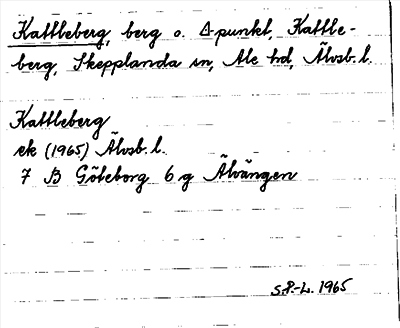 Kattleberg, berg o. Δ-punkt, Kattle-
berg, Skepplanda sn, Ale hd, Älvsb. l.
Kattleberg
ek (1965) Älvsb. l.
7 B Göteborg 6 g Älvängen
S.P.-L. 1965